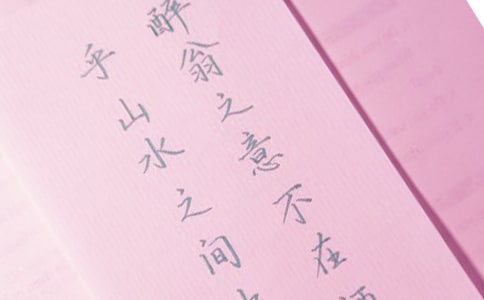 醉翁之意不在酒
乎山水之间